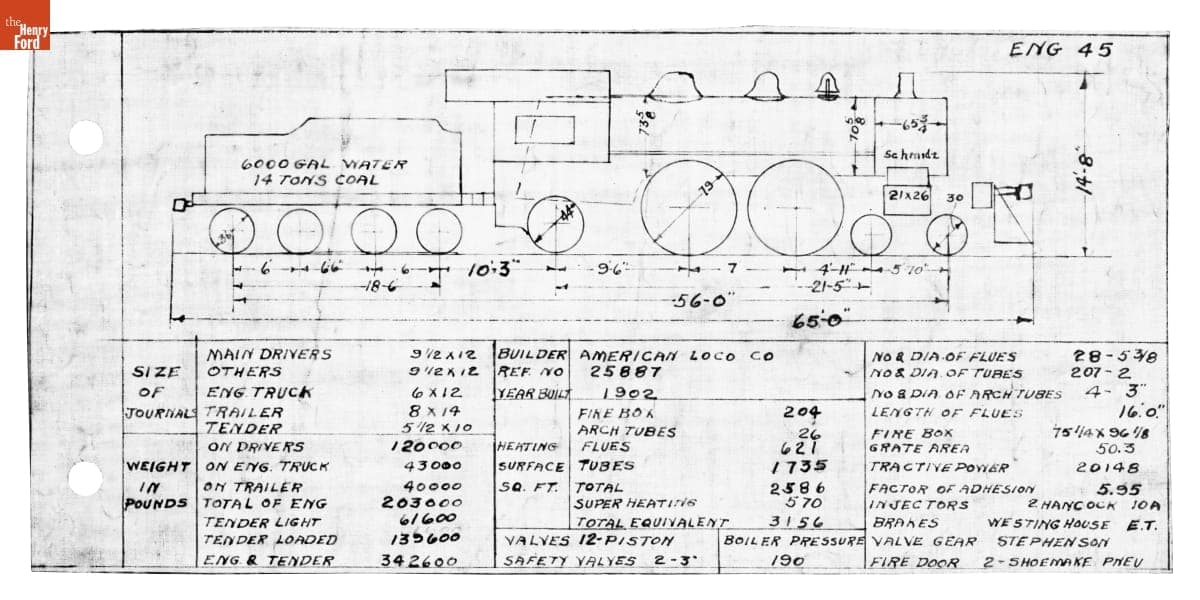 the
Henry
Ford
ENG 45
6000 GAL WATER
14 TONS COAL
73 5/8
70 5/8
65 3/4
Schmidt
21x26
30
14'-8"
36
44
79
6'
6'6"
6
10'-3"
9'-6"
7
4'-11"
5'10"
18-6
21-5"
56-0
65'-0"
SIZE OF JOURNALS
MAIN DRIVERS 9 1/2 x 12
OTHERS 9 1/2 x 12
ENG. TRUCK 6 x 12
TRAILER 8 x 14
TENDER 5 1/2 x 10
WEIGHT IN POUNDS
ON DRIVERS 120000
ON ENG. TRUCK 43000
ON TRAILER 40000
TOTAL OF ENG 203000
TENDER LIGHT 61600
TENDER LOADED 139600
ENG. & TENDER 342600
BUILDER AMERICAN LOCO CO
REF. NO 25887
YEAR BUILT 1902
HEATING SURFACE SQ. FT.
FIRE BOX 204
ARCH TUBES 26
FLUES 621
TUBES 1735
TOTAL 2586
SUPER HEATING 570
TOTAL EQUIVALENT 3156
VALVES 12-PISTON
SAFETY VALVES 2-3"
BOILER PRESSURE
190
NO & DIA. OF FLUES 28-5 3/8
NO & DIA. OF TUBES 207-2
NO & DIA. OF ARCH TUBES 4- 3"
LENGTH OF FLUES 16'.0"
FIRE BOX 75 1/4 x 96 1/8
GRATE AREA 50.3
TRACTIVE POWER 20148
FACTOR OF ADHESION 5.95
INJECTORS 2 HANCOCK 10A
BRAKES WESTINGHOUSE E.T.
VALVE GEAR STEPHENSON
FIRE DOOR 2-SHOEMAKE PNEU